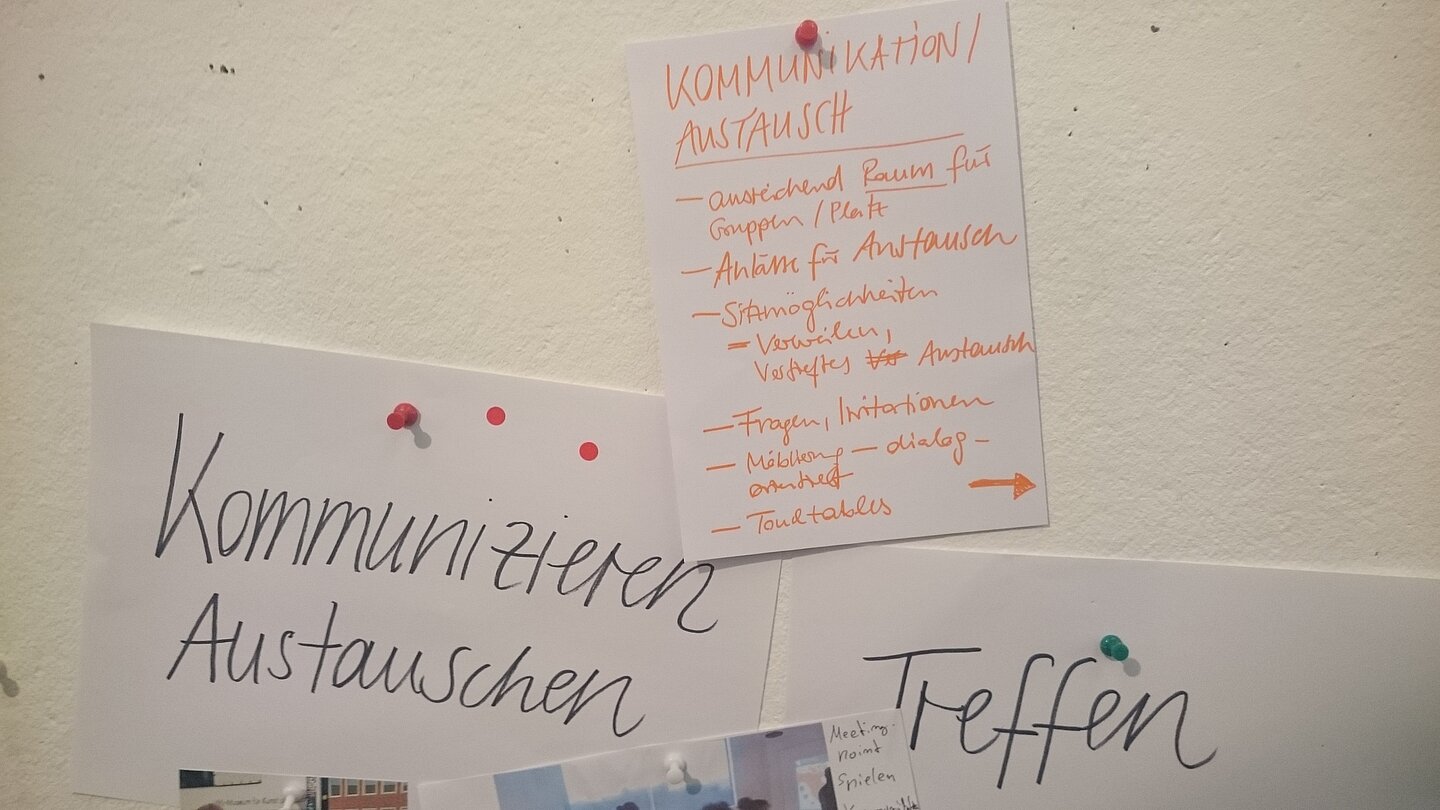 KOMMUNIKATION/
AUSTAUSCH
– ausreichend Raum für
Gruppen / Platz
– Anlässe für Austausch
– Sitzmöglichkeiten
= Verweilen,
Vertieftes Austausch
– Fragen, Irritationen
– Möblierung – dialog-
orientiert
– Touchtables
Kommunizieren
Austauschen
Treffen
Meeting-
point
Spielen